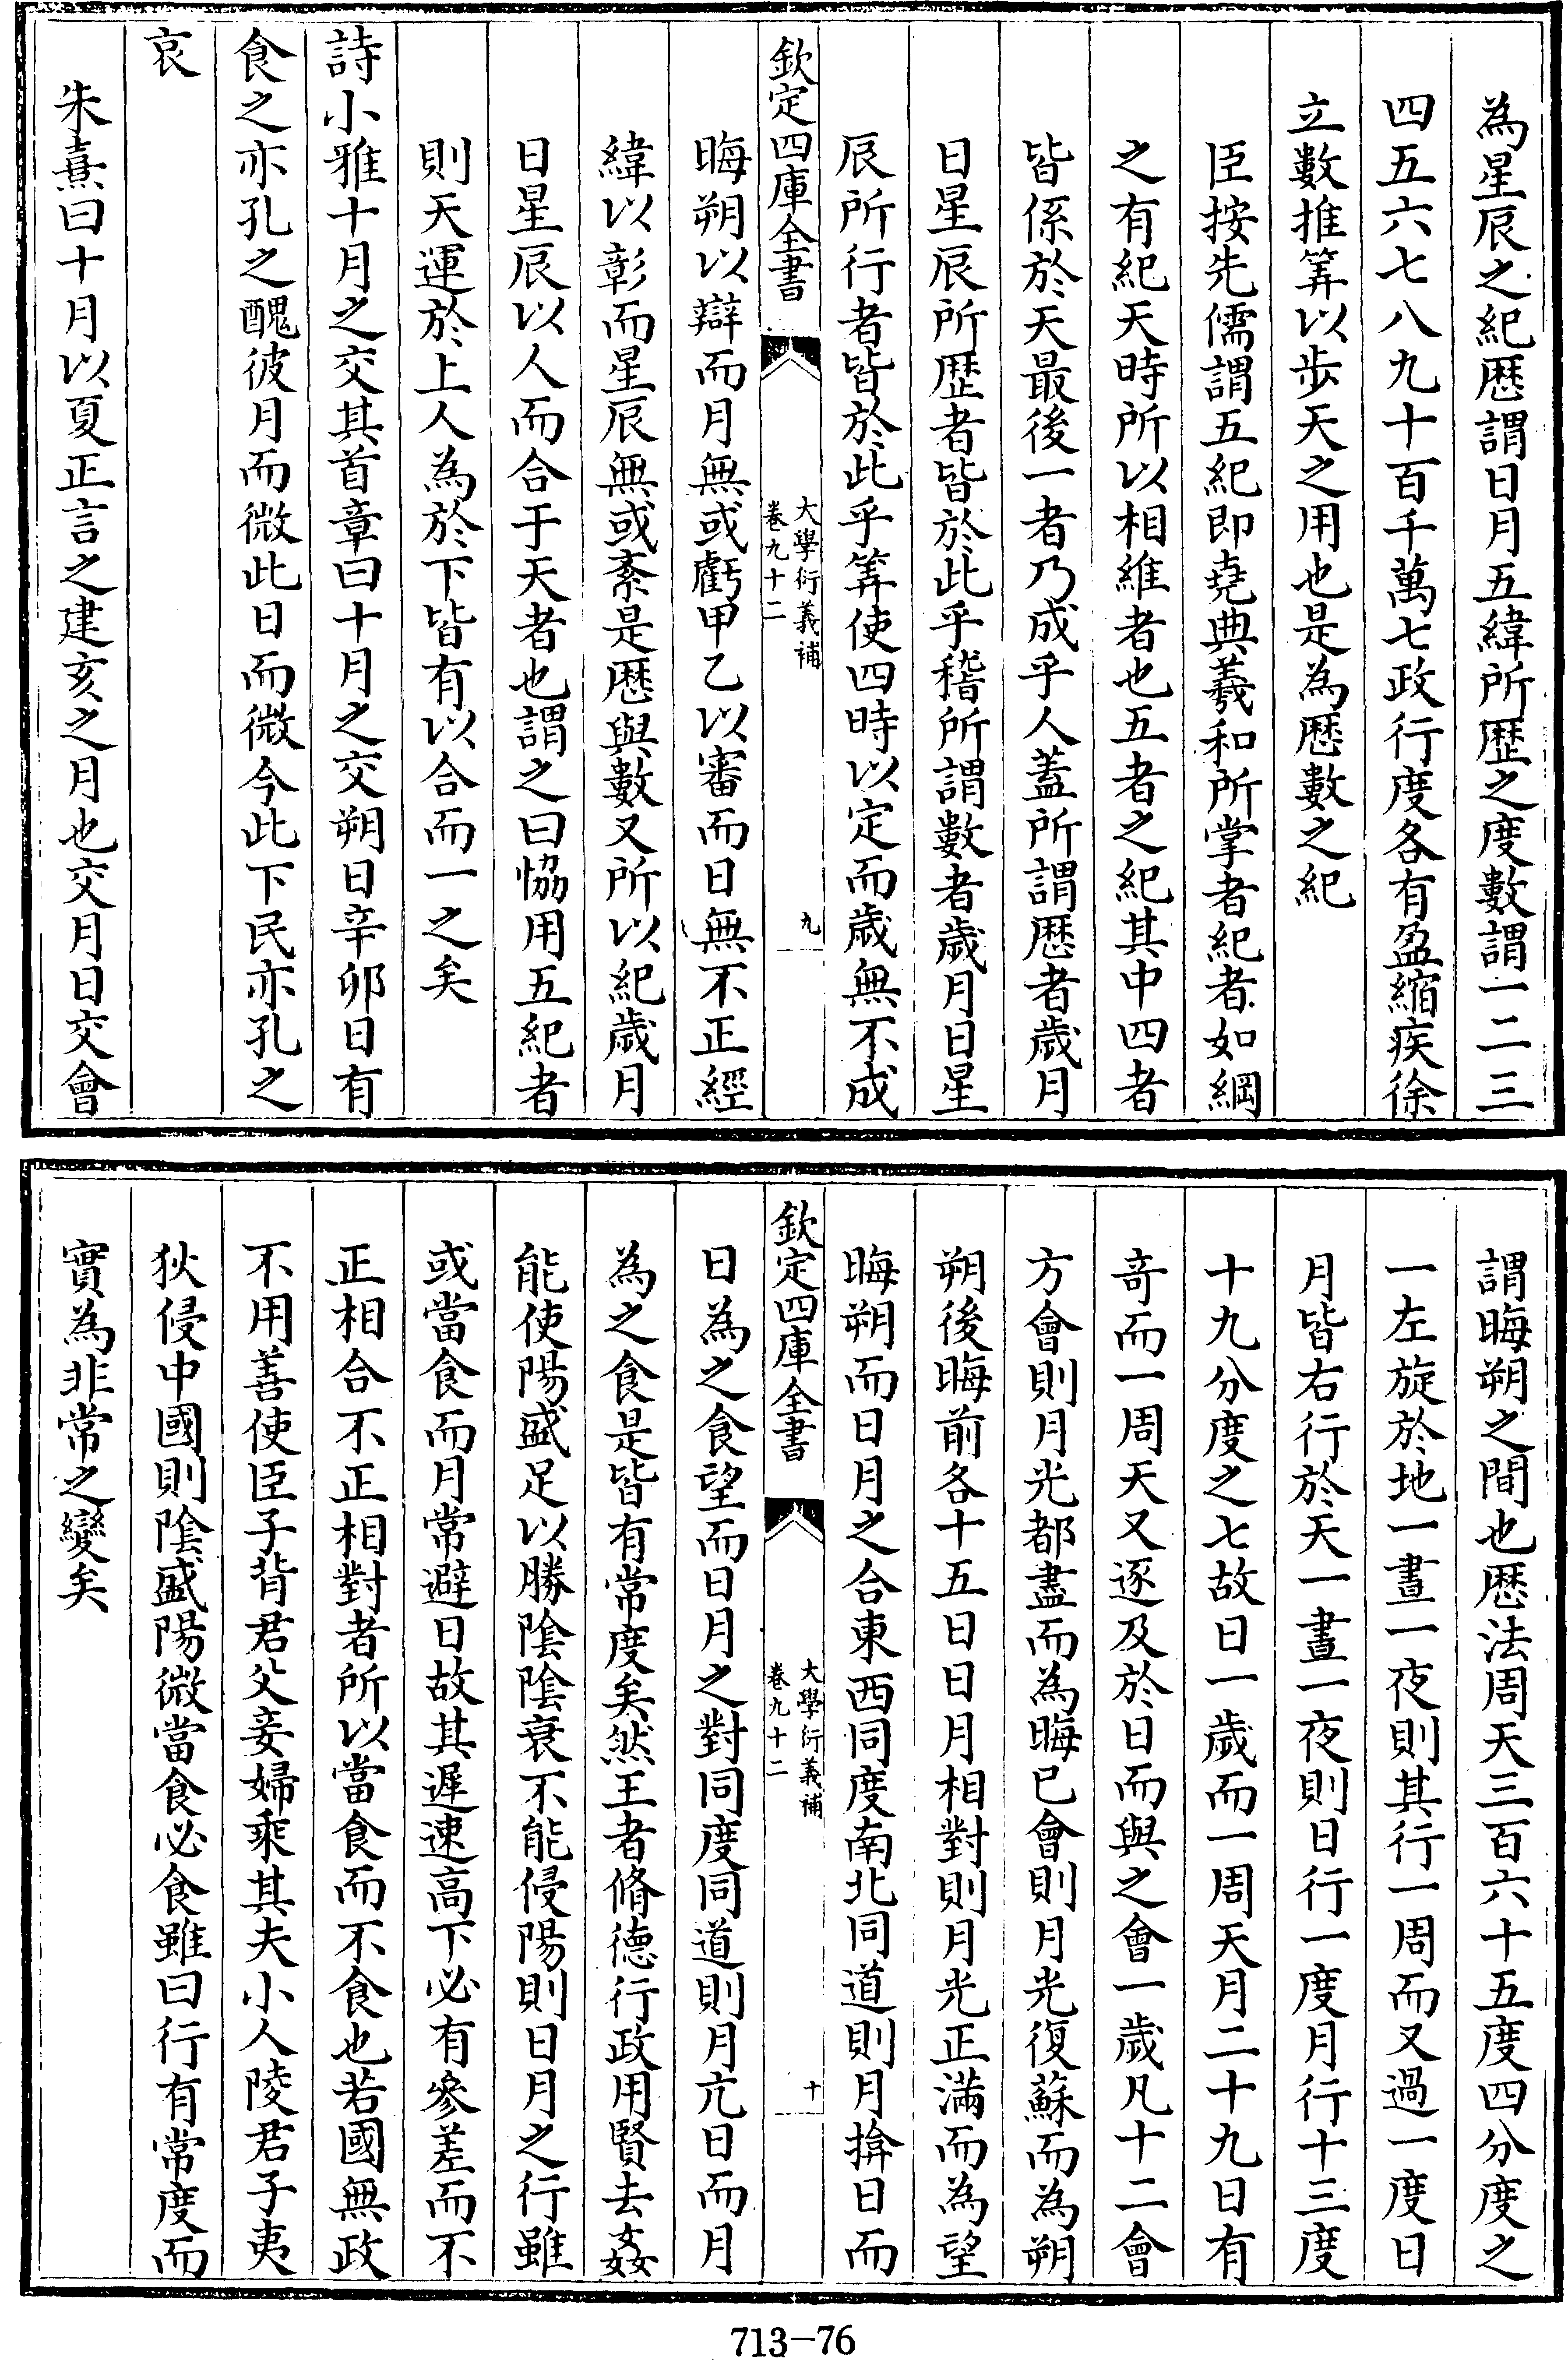 為星辰之紀厯謂日月五緯所歴之度數謂一二三
四五六七八九十百千萬七政行度各有盈縮疾徐
立數推筭以步天之用也是為厯數之紀
臣按先儒謂五紀即堯典羲和所掌者紀者如綱
之有紀天時所以相維者也五者之紀其中四者
皆係於天最後一者乃成乎人蓋所謂厯者歲月
日星辰所歴者皆於此乎稽所謂數者歲月日星
辰所行者皆於此乎筭使四時以定而歲無不成
欽定四庫全書
大學衍義補
卷九十二
九
晦朔以辯而月無或虧甲乙以審而日無不正經
緯以彰而星辰無或紊是厯與數又所以紀歲月
日星辰以人而合于天者也謂之曰恊用五紀者
則天運於上人為於下皆有以合而一之矣
詩小雅十月之交其首章曰十月之交朔日辛卯日有
食之亦孔之醜彼月而微此日而微今此下民亦孔之
哀
朱熹曰十月以夏正言之建亥之月也交月日交會
謂晦朔之間也厯法周天三百六十五度四分度之
一左旋於地一晝一夜則其行一周而又過一度日
月皆右行於天一晝一夜則日行一度月行十三度
十九分度之七故日一歲而一周天月二十九日有
奇而一周天又逐及於日而與之會一歲凡十二會
方會則月光都盡而為晦已會則月光復蘇而為朔
朔後晦前各十五日日月相對則月光正滿而為望
晦朔而日月之合東西同度南北同道則月揜日而
欽定四庫全書
大學衍義補
卷九十二
十
日為之食望而日月之對同度同道則月亢日而月
為之食是皆有常度矣然王者脩德行政用賢去姦
能使陽盛足以勝陰陰衰不能侵陽則日月之行雖
或當食而月常避日故其遲速高下必有參差而不
正相合不正相對者所以當食而不食也若國無政
不用善使臣子背君父妾婦乘其夫小人陵君子夷
狄侵中國則陰盛陽微當食必食雖曰行有常度而
實為非常之變矣
713-76